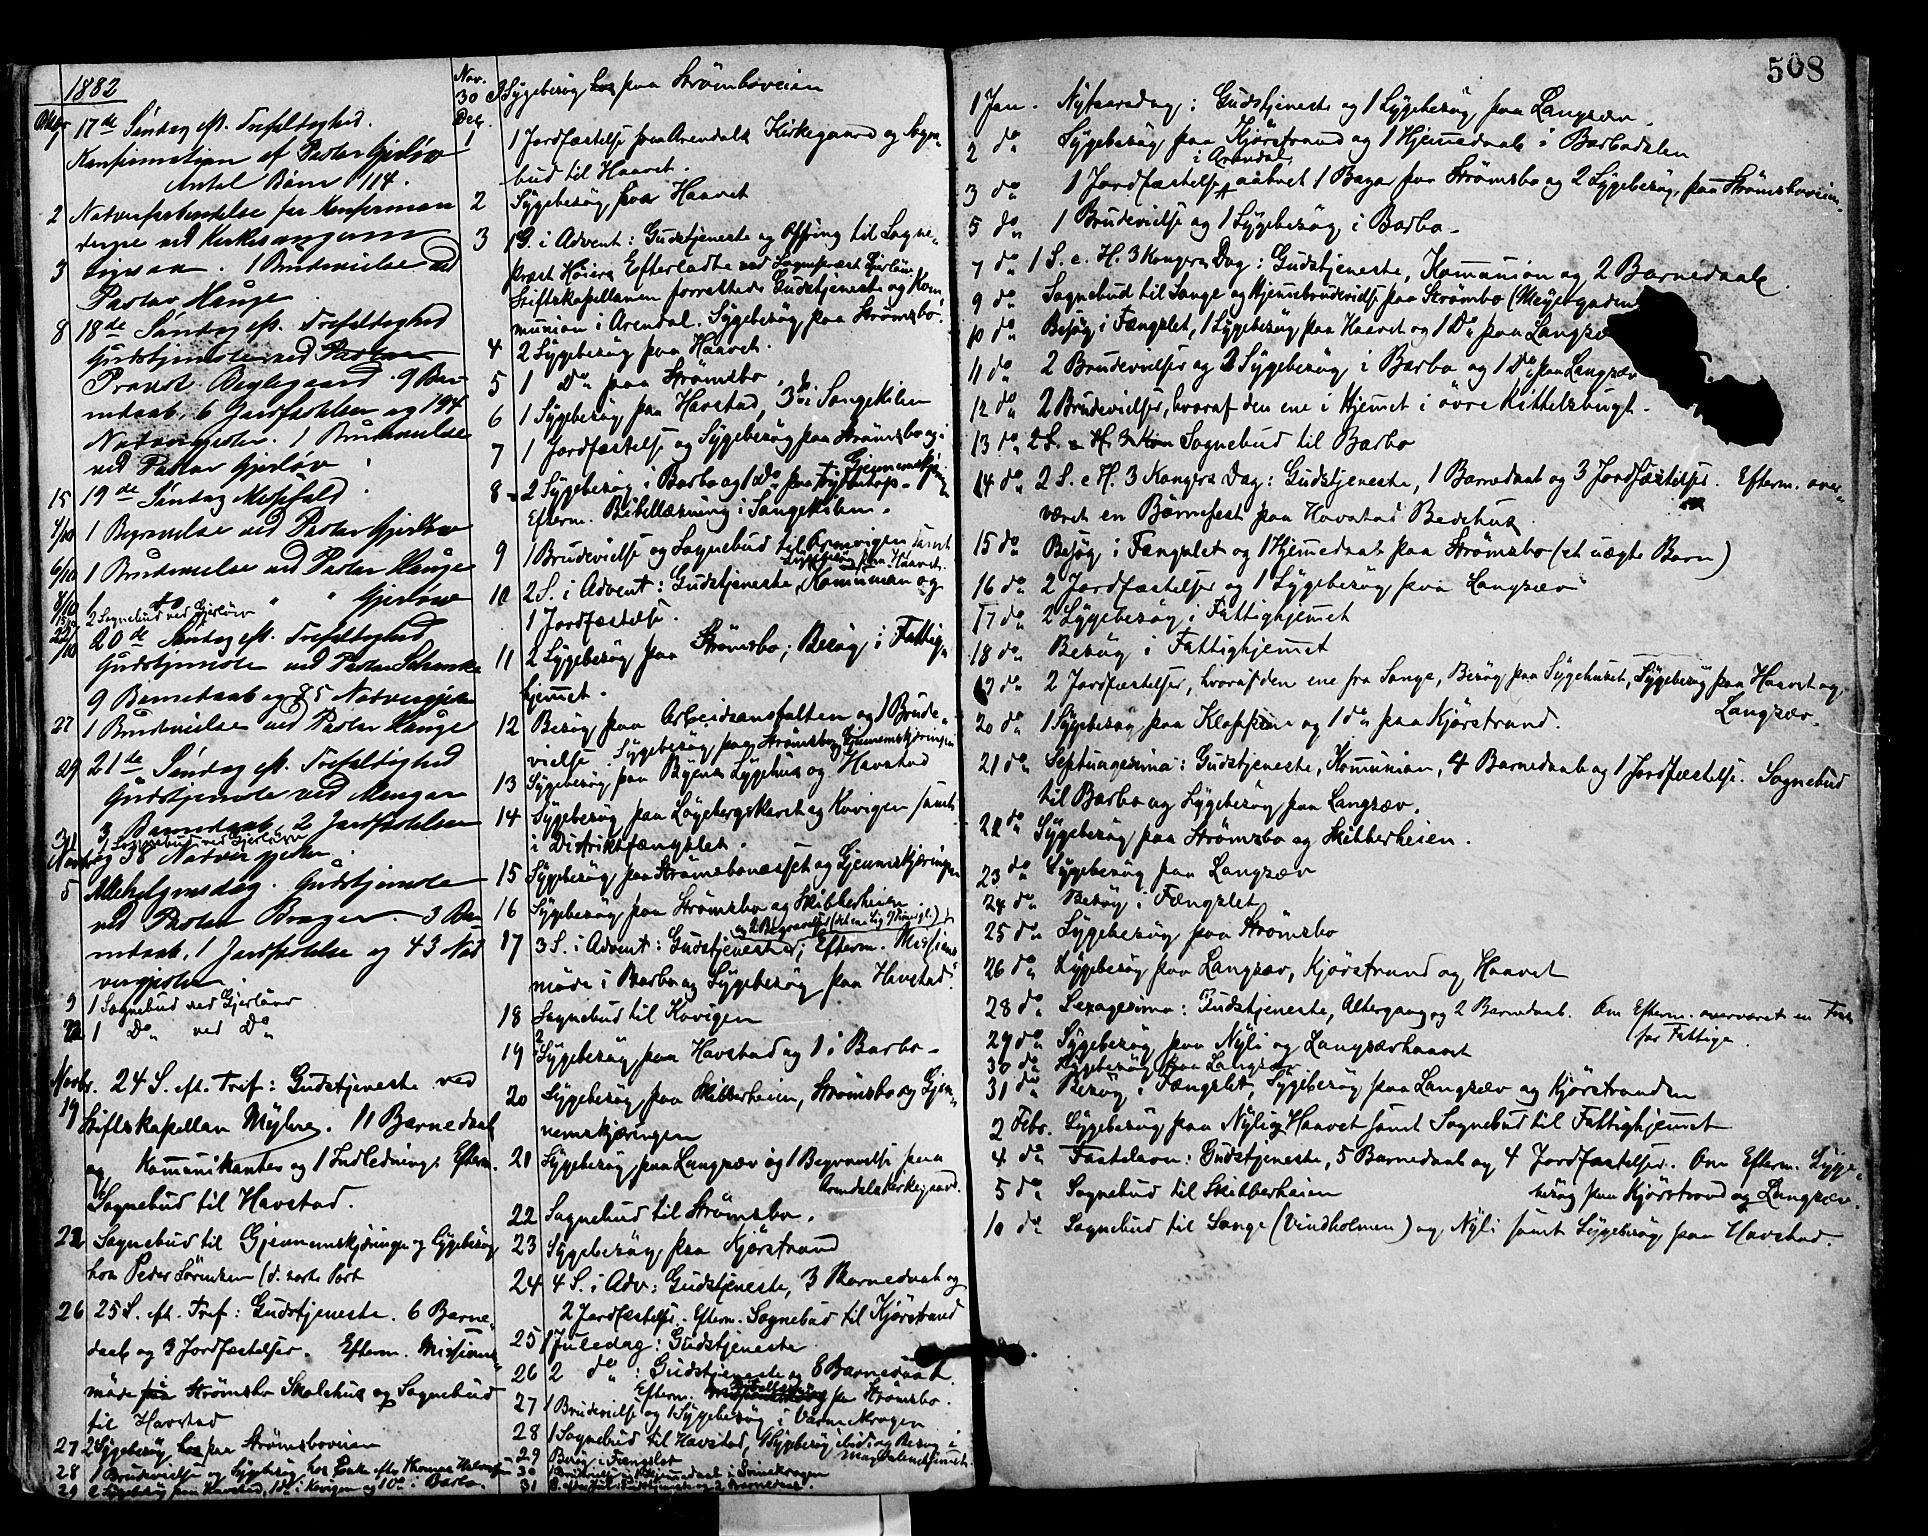 1882
17de Søndag eft. Trefoldighed.
Konfirmation af Pastor Gjerløw
Antal Børn 114.
2 Nadverforberedelse for Konfirman
derne ved Kirkesangeren
3 1 Brudevielse ved
Pastor Hauge
8 18de Søndag eft. Trefoldighed
Gudstjeneste ved Pastor
Provst 9 Bar
nedaab, 6 Jordfæstelser og 194
Nadvergjester. 1 Brudevielse
ved Pastor Gjerløw
15 19de Søndag Messefald.
4/10 1 Begravelse ved Pastor Gjerløw
6/10 1 Brudevielse ved Pastor Hauge
8/10 1 do " " Gjerløw
15/10 2 Sognebud ved Gjerløw
22/10 20de Søndag eft. Trefoldighed
Gudstjeneste ved Pastor
9 Barnedaab og 85 Nadvergjester
27 1 Brudevielse ved Pastor Hauge
29 21de Søndag eft. Trefoldighed
Gudstjeneste ved
3 Barnedaab, 2 Jordfæstelser
31 1 Sognebud ved Gjerløw
og 38 Nadvergjester.
Novbr
5 Allehelgensdag. Gudstjeneste
ved Pastor 3 Bar
nedaab, 1 Jordfæstelse og 43 Nad
vergjester.
9 1 Sognebud ved Gjerløw
22 1 Do ved Do
Novbr. 24 S. eft. Tref: Gudstjeneste ved
19 Stiftskapellan Myhre. 11 Barnedaab
og Kommunikanter og 1 Indledning. Efterm.
Sognebud til Havstad.
22 Sognebud til Gjennemskjæringen og Sygebesøg
hos Peder Sørensen
26 25 S. eft. Tref: Gudstjeneste. 6 Barne-
daab og 3 Jordfæstelser. Efterm. Missions-
møde paa Strømsbo Skolehus og Sognebud
til Havstad
27 2 Sygebesøg hos paa Strømsboveien
28 1 Brudevielse og Sygebesøg hos Enke efter Thomas
29 2 Sygebesøg paa Havstad, 1 do i Kovigen og 1 Do i Barbo.
Nov.
30 3 Sygebesøg hos paa Strømsboveien
Dec.
1 1 Jordfæstelse paa Arendals Kirkegaard og Sogne-
bud til Haavet.
2 Sygebesøg paa Haavet
3 1 S. i Advent: Gudstjeneste og Offring til Sogne-
præst Høiers Efterladte ved Sognepræst Gjerløw.
Stiftskapellanen forrettede Gudstjeneste og Kom
munion i Arendal. Sygebesøg paa Strømsbo.
4 2 Sygebesøg paa Haavet.
5 1 Do paa Strømsbo.
6 1 Sygebesøg paa Havstad, 3 do i Songekilen
7 1 Jordfæstelse og Sygebesøg paa Strømsbo og i
Gjennemskjæringen
8 2 Sygebesøg i Barbo og 1 Do paa
Efterm. Bibellæsning i Songekilen.
9 1 Brudevielse og Sognebud til samt
Sygebesøg paa Haavet.
10 2 S. i Advent: Gudstjeneste, Kommunion og
1 Jordfæstelse.
11 2 Sygebesøg paa Strømsbo; Besøg i Fattig-
hjemmet.
12 Besøg paa Arbeidsanstalten og 1 Brude-
vielse. Sygebesøg paa Strømsbo og Gjennemskjæringen
13 Sygebesøg paa Byens Sygehus og Havstad
14 Sygebesøg paa og Kovigen samt
i Distriktsfængslet.
15 Sygebesøg paa Strømsbonæsset og Gjennemskjæringen
16 Sygebesøg paa Strømsbo og Skibberheien.
og 2 Begravelser
17 3 S. i Advent: Gudstjeneste; Efterm. Missions
møde i Barbo og Sygebesøg paa Havstad.
18 Sognebud til Kovigen
19 2 Sygebesøg paa Havstad og 1 i Barbo.
20 Sygebesøg paa Skibberheien, Strømsbo og Gjen-
nemskjæringen
21 Sygebesøg paa Langsæv og 1 Begravelse paa
Arendals Kirkegaard.
22 Sognebud til Strømsbo.
23 Sygebesøg paa Kjørstrand
24 4 S. i Adv: Gudstjeneste, 3 Barnedaab og
2 Jordfæstelser. Efterm. Sognebud til Kjørstrand
25 1 Juledag: Gudstjeneste
26 2 do: Gudstjeneste og 8 Barnedaab.
Efterm. paa Strømsbo.
27 1 Brudevielse og 1 Sygebesøg i Varmekrogen
28 1 Sognebud til Havstad, 1 Sygebesøg og Besøg i
Magdalenehjemmet.
29 Besøg i Fængslet
30 1 Brudevielse og 1 Hjemmedaab i Svinekrogen
31 S. efter Jul: Gudstjeneste og 2 Barnedaab.
508
1 Jan. Nytaarsdag: Gudstjeneste og 1 Sygebesøg paa Langsæv.
2 do Sygebesøg paa Kjørstrand og 1 Hjemmedaab i Barbodalen
i Arendal
3 do 1 Jordfæstelse, aabnet 1 Bazar paa Strømsbo og 2 Sygebesøg paa Strømsboveien.
5 do 1 Brudevielse og 1 Sygebesøg i Barbo.
7 do 1 S. e. H. 3 Kongers Dag: Gudstjeneste, Kommunion og 2 Barnedaab.
9 do Sognebud til Songe og Hjemmebrudevielse paa Strømsbo (Meyergaarden
10 do Besøg i Fængslet, 1 Sygebesøg paa Haavet og 1 Do paa Langsæv
11 do 2 Brudevielser og 3 Sygebesøg i Barbo og 1 Do paa Langsæv
12 do 2 Brudevielser, hvoraf den ene i Hjemmet i øvre Kittelsbugt.
13 do 2 S. e H. 3 Kon Sognebud til Barbo
14 do 2 S. e H. 3 Kongers Dag: Gudstjeneste, 1 Barnedaab og 3 Jordfæstelser. Efterm. over-
været en Børnefest paa Havstad Bedehus
15 do Besøg i Fængslet og 1 Hjemmedaab paa Strømsbo (et uægte Barn)
16 do 2 Jordfæstelser og 1 Sygebesøg paa Langsæv
17 do 2 Sygebesøg i Fattighjemmet
18 do Besøg i Fattighjemmet
19 do 2 Jordfæstelser, hvoraf den ene fra Songe, Besøg paa Sygehuset, Sygebesøg paa Haavet og
Langsæv.
20 do 1 Sygebesøg paa Kloppene og 1 do paa Kjørstrand.
21 do Septuagesima: Gudstjeneste, Kommunion, 4 Barnedaab og 1 Jordfæstelse. Sognebud
til Barbo og Sygebesøg paa Langsæv.
22 do Sygebesøg paa Strømsbo og Skibberheien.
23 do Sygebesøg paa Langsæv
24 do Besøg i Fængslet
25 do Sygebesøg paa Strømsbo
26 do Sygebesøg paa Langsæv, Kjørstrand og Haavet
28 do Sexagesima: Gudstjeneste, Altergang og 2 Barnedaab. Om Efterm. overværet en Fest
for Fattige.
29 do Sygebesøg paa Nyli og Langsævhaavet
30 do Sygebesøg paa Langsæv
31 do Besøg i Fængslet, Sygebesøg paa Langsæv og Kjørstranden
2 Febr. Sygebesøg paa Nyli og Haavet samt Sognebud til Fattighjemmet
4 do Fastelavn: Gudstjeneste, 5 Barnedaab og 4 Jordfæstelser. Om Efterm. Syge-
besøg paa Kjørstrand og Langsæv.
5 do Sognebud til Skibberheien
10 do Sognebud til Songe (Vindholmen) og Nyli samt Sygebesøg paa Havstad.